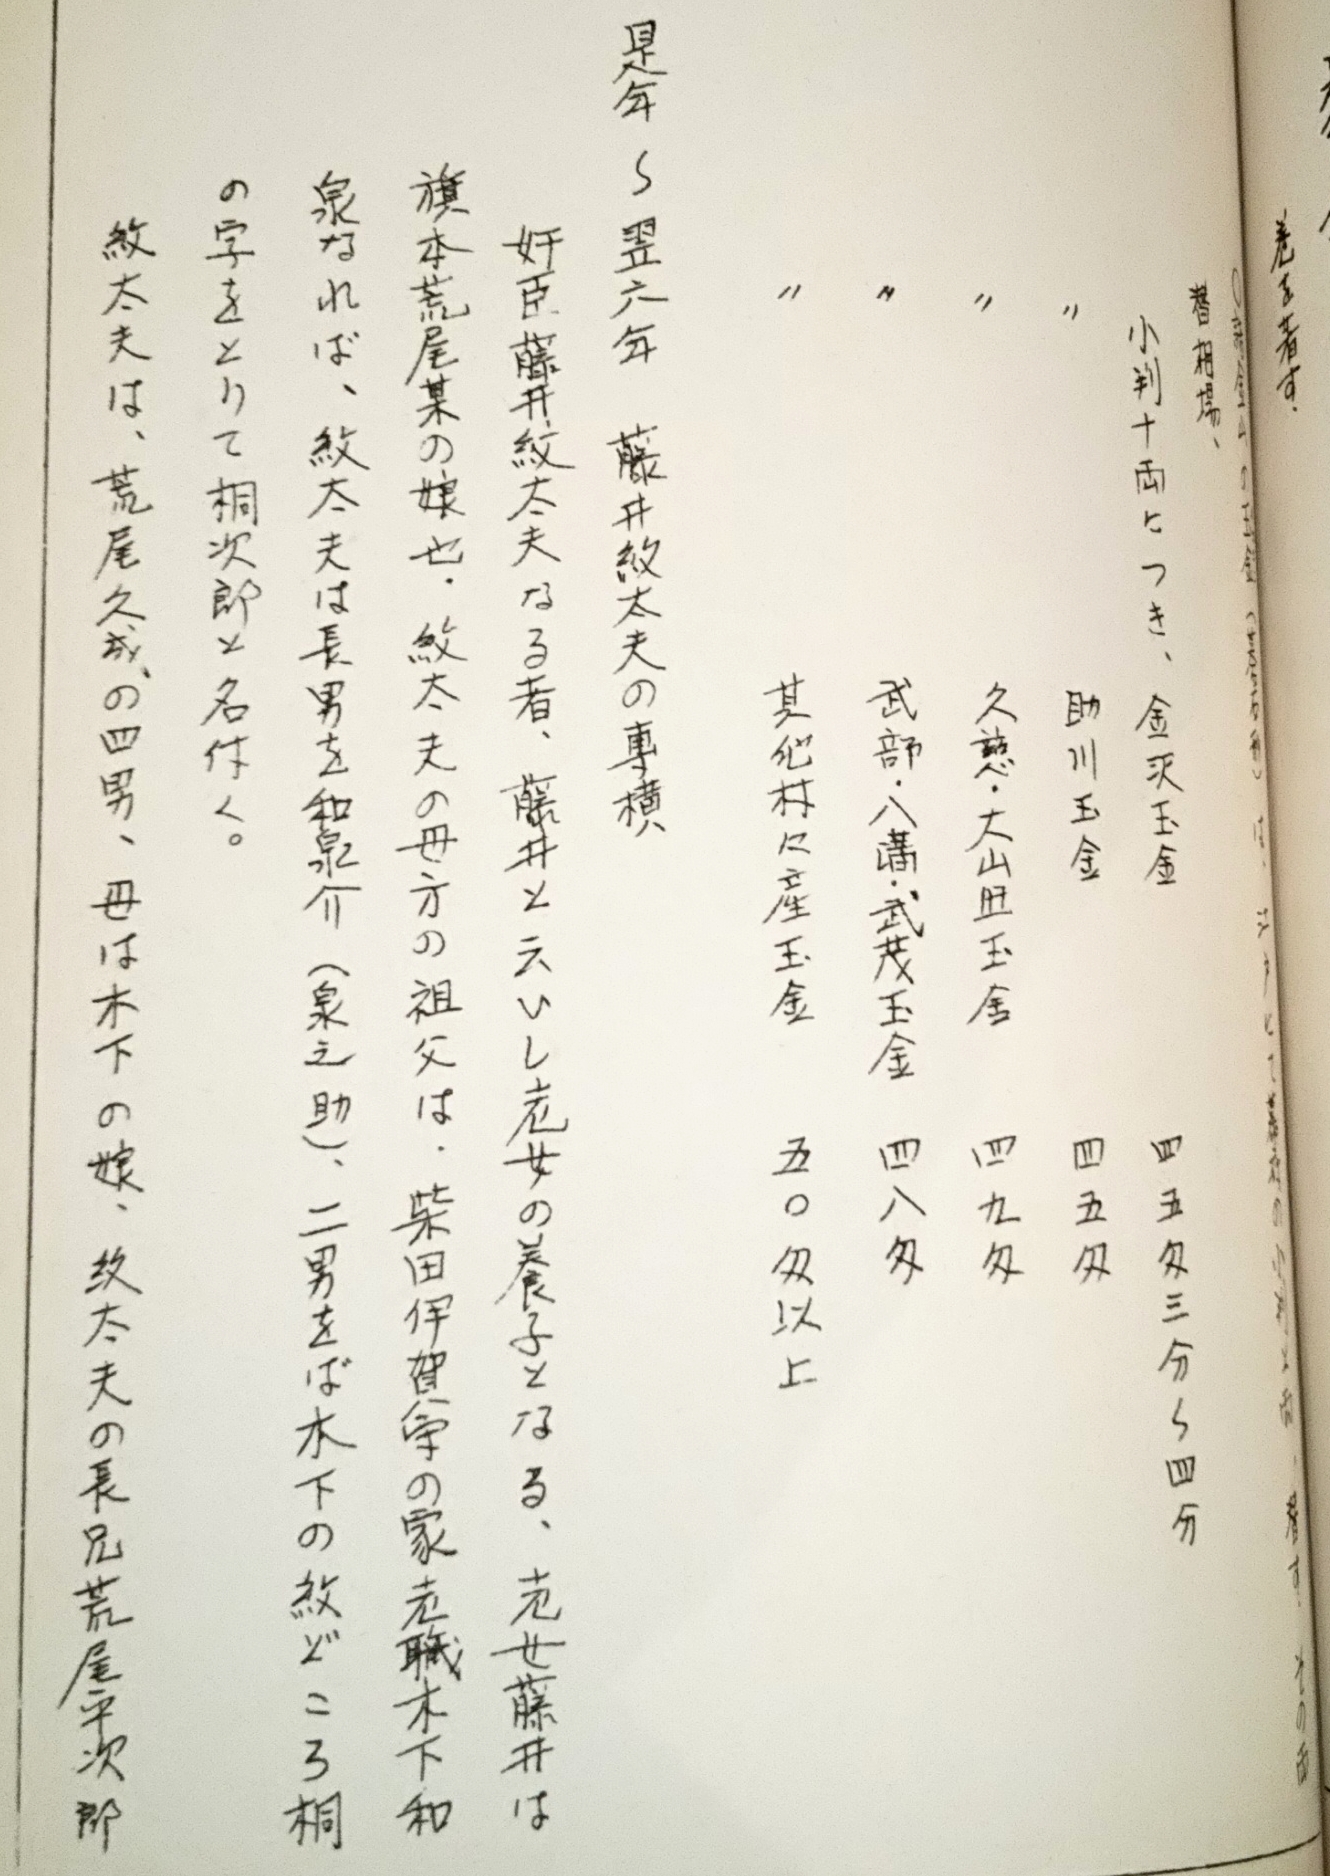 巻を著す.
替相場、
小判十両につき、金沢玉金 四五匁三分〜四分
〃 助川玉金 四五匁
〃 久慈・大山田玉金 四九匁
〃 武部・八溝・武茂玉金 四八匁
〃 其他村々産玉金 五〇匁以上
是年〜翌六年 藤井紋太夫の専横
奸臣藤井紋太夫なる者、藤井と云いし老女の養子となる、老女藤井は
旗本荒尾某の娘也. 紋太夫の母方の祖父は. 柴田伊賀守の家老職木下和
泉なれば、紋太夫は長男を和泉介（泉之助）、二男をば木下の紋どころ桐
の字をとりて桐次郎と名付く。
紋太夫は、荒尾久成の四男、母は木下の娘、紋太夫の長兄荒尾平次郎